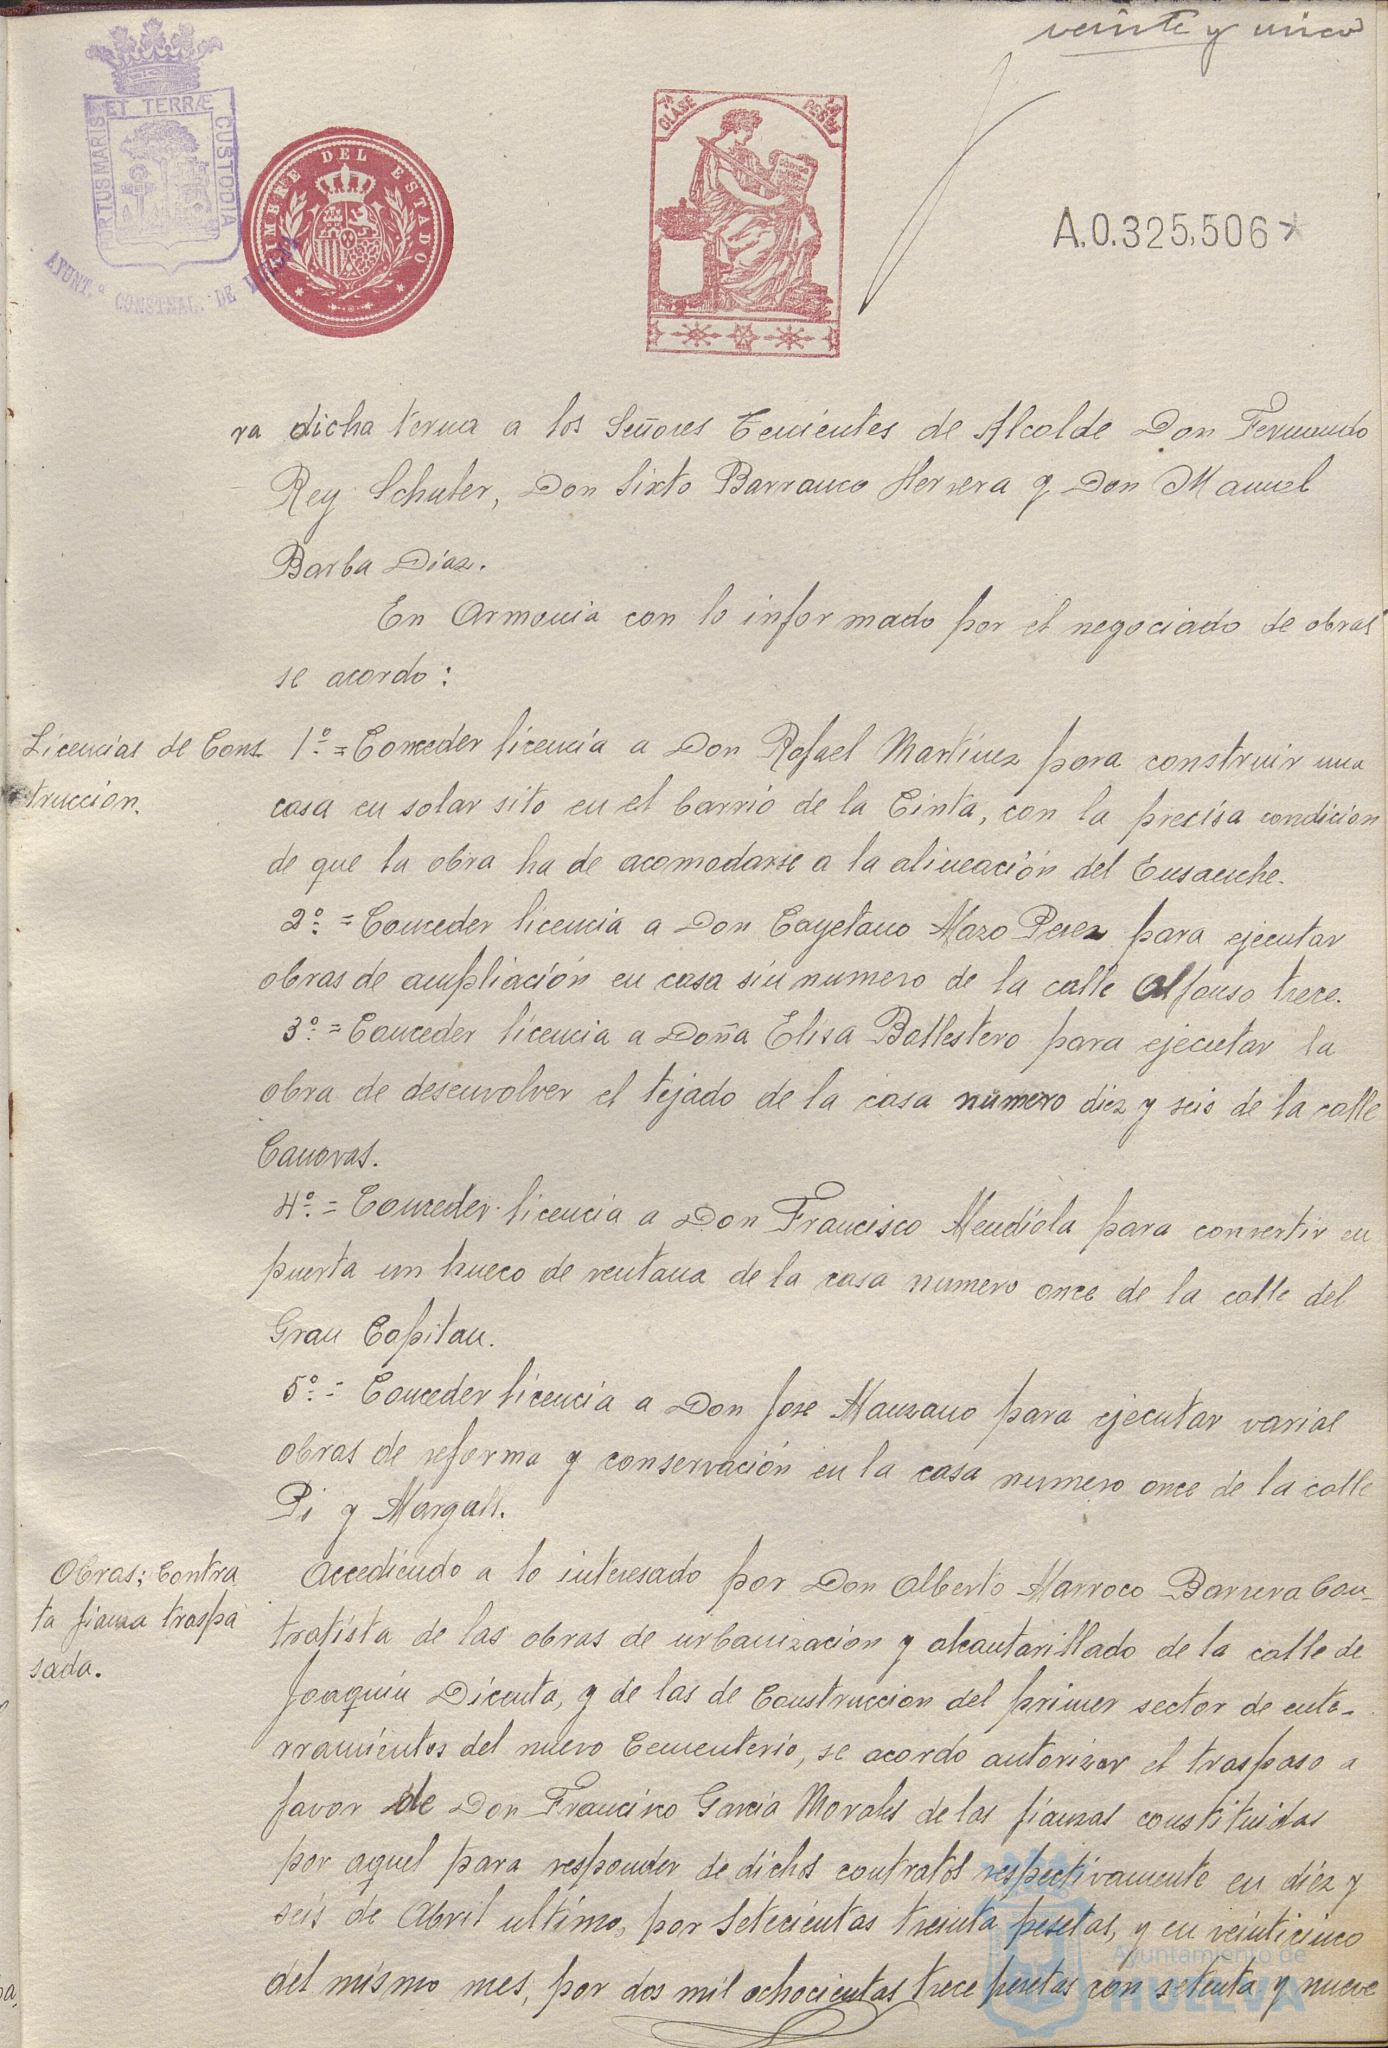 veinte y cinco
PORTUS MARIS ET TERRÆ CUSTODIA
AYUNT.º CONSTNAL. DE HUELVA
TIMBRE DEL ESTADO
7ª CLASE
PESETAS
A.0.325,506*
ra dicha terna a los Señores Tenientes de Alcalde Don Fernando
Rey Schuler, Don Sixto Barranco Herrera y Don Manuel
Barba Díaz.
En Armonia con lo informado por el negociado de obras
se acordo:
Licencias de Cons-
trucción.
1º = Conceder licencia a Don Rafael Martínez para construir una
casa en solar sito en el barrio de la Cinta, con la precisa condición
de que la obra ha de acomodarse a la alineación del Ensanche.
2º = Conceder licencia a Don Cayetano Mazo Perez para ejecutar
obras de ampliación en casa sin numero de la calle Alfonso trece.
3º = Conceder licencia a Doña Elisa Ballestero para ejecutar la
obra de desenvolver el tejado de la casa número diez y seis de la calle
Canovas.
4º = Conceder licencia a Don Francisco Mendiola para convertir en
puerta un hueco de ventana de la casa numero once de la calle del
Gran Capitan.
5º = Conceder licencia a Don Jose Manzano para ejecutar varias
obras de reforma y conservación en la casa numero once de la calle
Pi y Margall.
Obras; Contra
ta fianza traspa
sada.
Accediendo a lo interesado por Don Alberto Marroco Barrera Con-
tratista de las obras de urbanización y alcantarillado de la calle de
Joaquín Dicenta, y de las de Construccion del primer sector de ente-
rramientos del nuevo Cementerio, se acordo autorizar el traspaso a
favor de Don Francisco Garcia Morales de las fianzas constituidas
por aquel para responder de dichos contratos respectivamente en diez y
seis de Abril ultimo, por Setecientas treinta pesetas, y en veinticinco
del mismo mes, por dos mil ochocientas trece pesetas con setenta y nueve
Ayuntamiento de
HUELVA